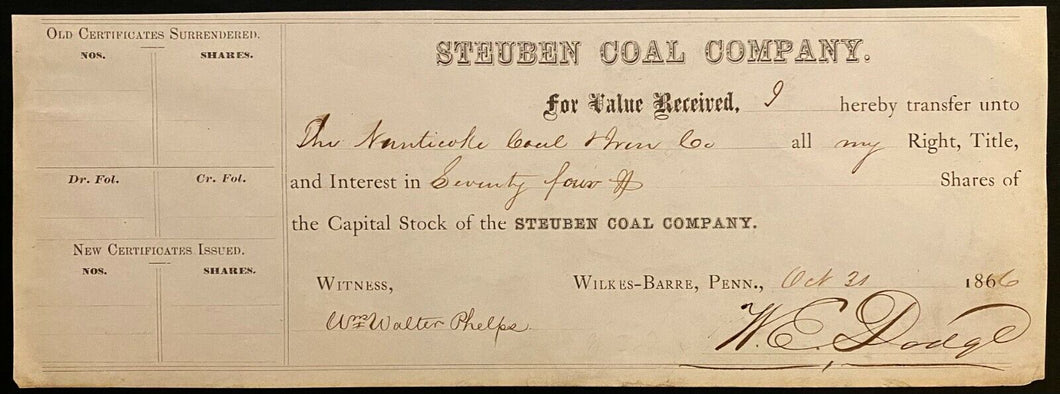 OLD CERTIFICATES SURRENDERED.
NOS. SHARES.
Dr. Fol. Cr. Fol.
NEW CERTIFICATES ISSUED.
NOS. SHARES.
STEUBEN COAL COMPANY.
For Value Received, I hereby transfer unto
The Nanticoke Coal & Iron Co all my Right, Title,
and Interest in Seventy four Shares of
the Capital Stock of the STEUBEN COAL COMPANY.
WITNESS, WILKES-BARRE, PENN., Oct 31 1866
Wm Walter Phelps. W. E. Dodge